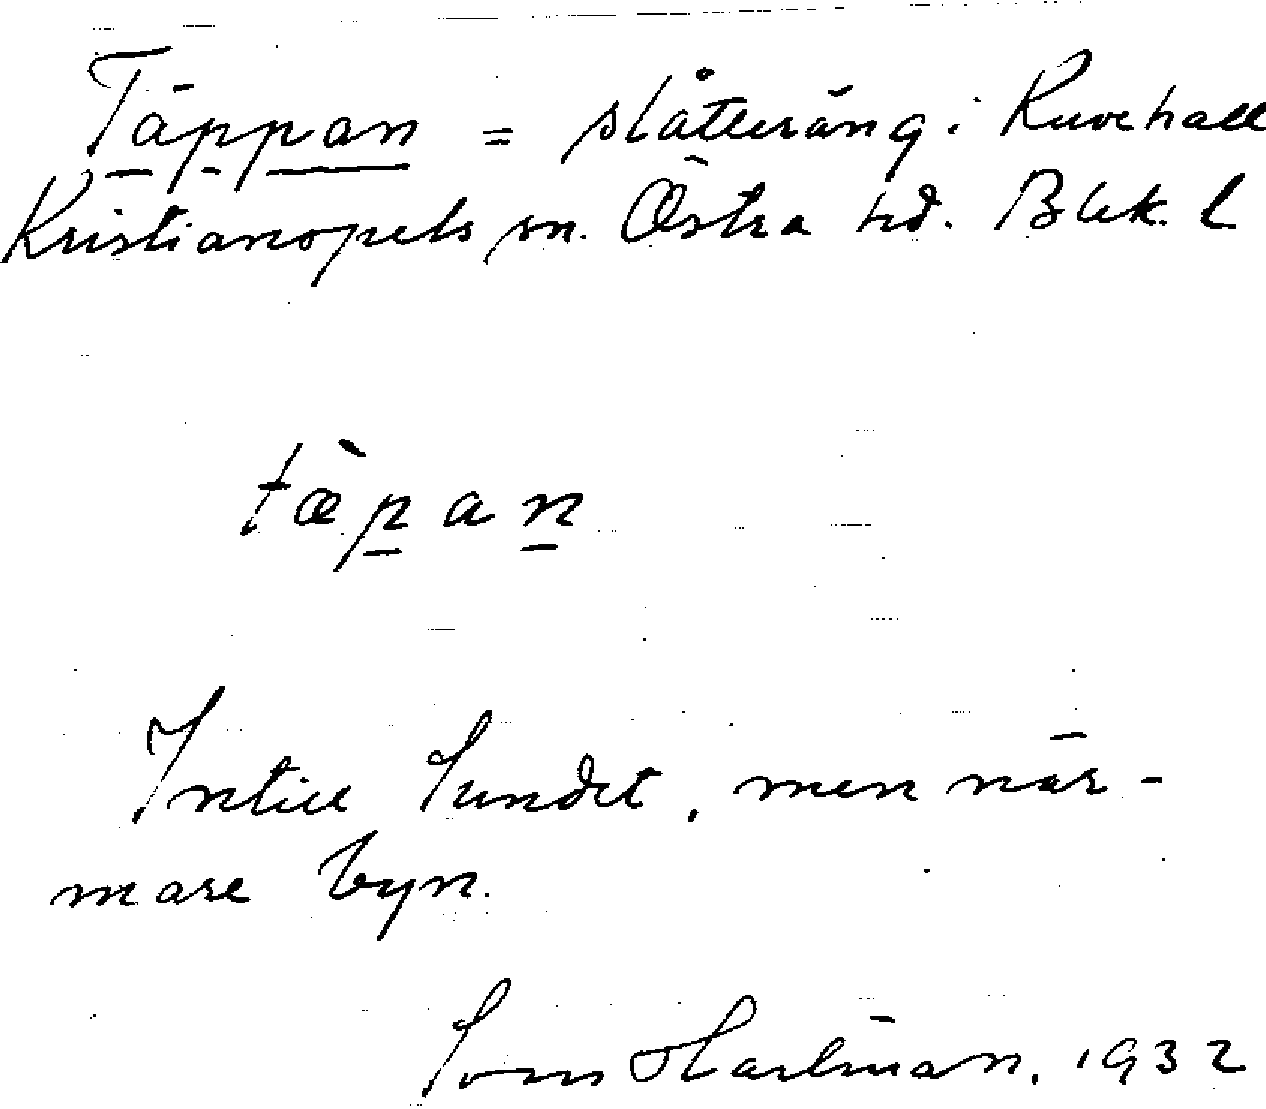 Täppan = slåtteräng i Ruvehall
Kristianopels sn. Östra hd. Blek. l
tæ̀pan
Intill Sundet, men när-
mare byn.
Sven Harlman, 1932